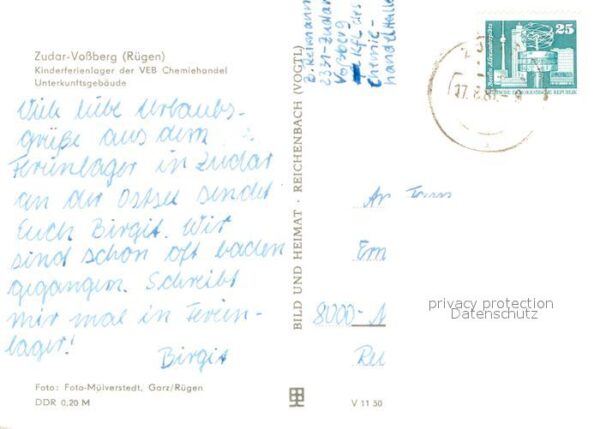 Zudar-Voßberg (Rügen)
Kinderferienlager der VEB Chemiehandel
Unterkunftsgebäude
Viele liebe Urlaubs-
grüße aus dem
Ferienlager in Zudar
an der Ostsee sendet
Euch Birgit. Wir
sind schon oft baden
gegangen. Schreibt
mir mal in Ferien-
lager!
Birgit
Foto: Foto-Mülverstedt, Garz/Rügen
DDR 0,20 M
BILD UND HEIMAT · REICHENBACH (VOGTL)
V 11 50
2331 Zudar
Voßberg
KFL des
Chemie-
handel Halle
25
DEUTSCHE DEMOKRATISCHE REPUBLIK
17.8.8
An Fam
8000-
privacy protection
Datenschutz